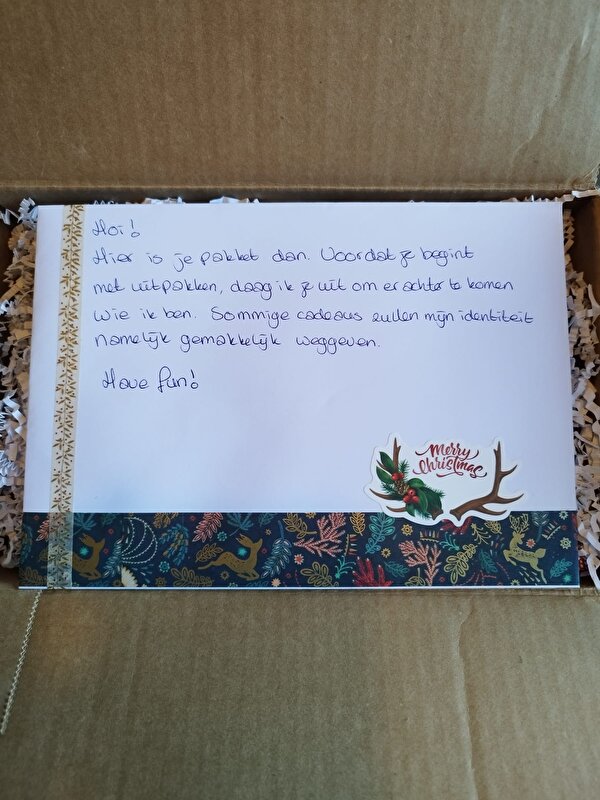 Hoi!
Hier is je pakket dan. Voordat je begint
met uitpakken, daag ik je uit om erachter te komen
wie ik ben. Sommige cadeaus zullen mijn identiteit
namelijk gemakkelijk weggeven.
Have fun!
Merry
Christmas